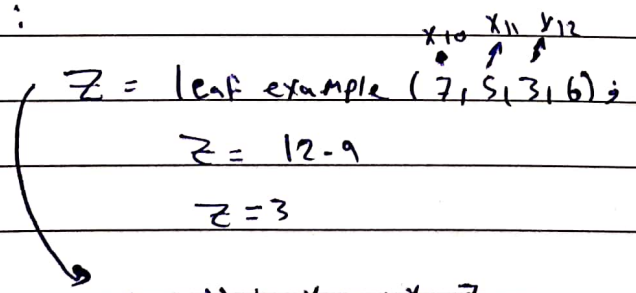 :
x10 x11 x12
Z = leaf example (7,5,3,6);
Z = 12-9
Z = 3